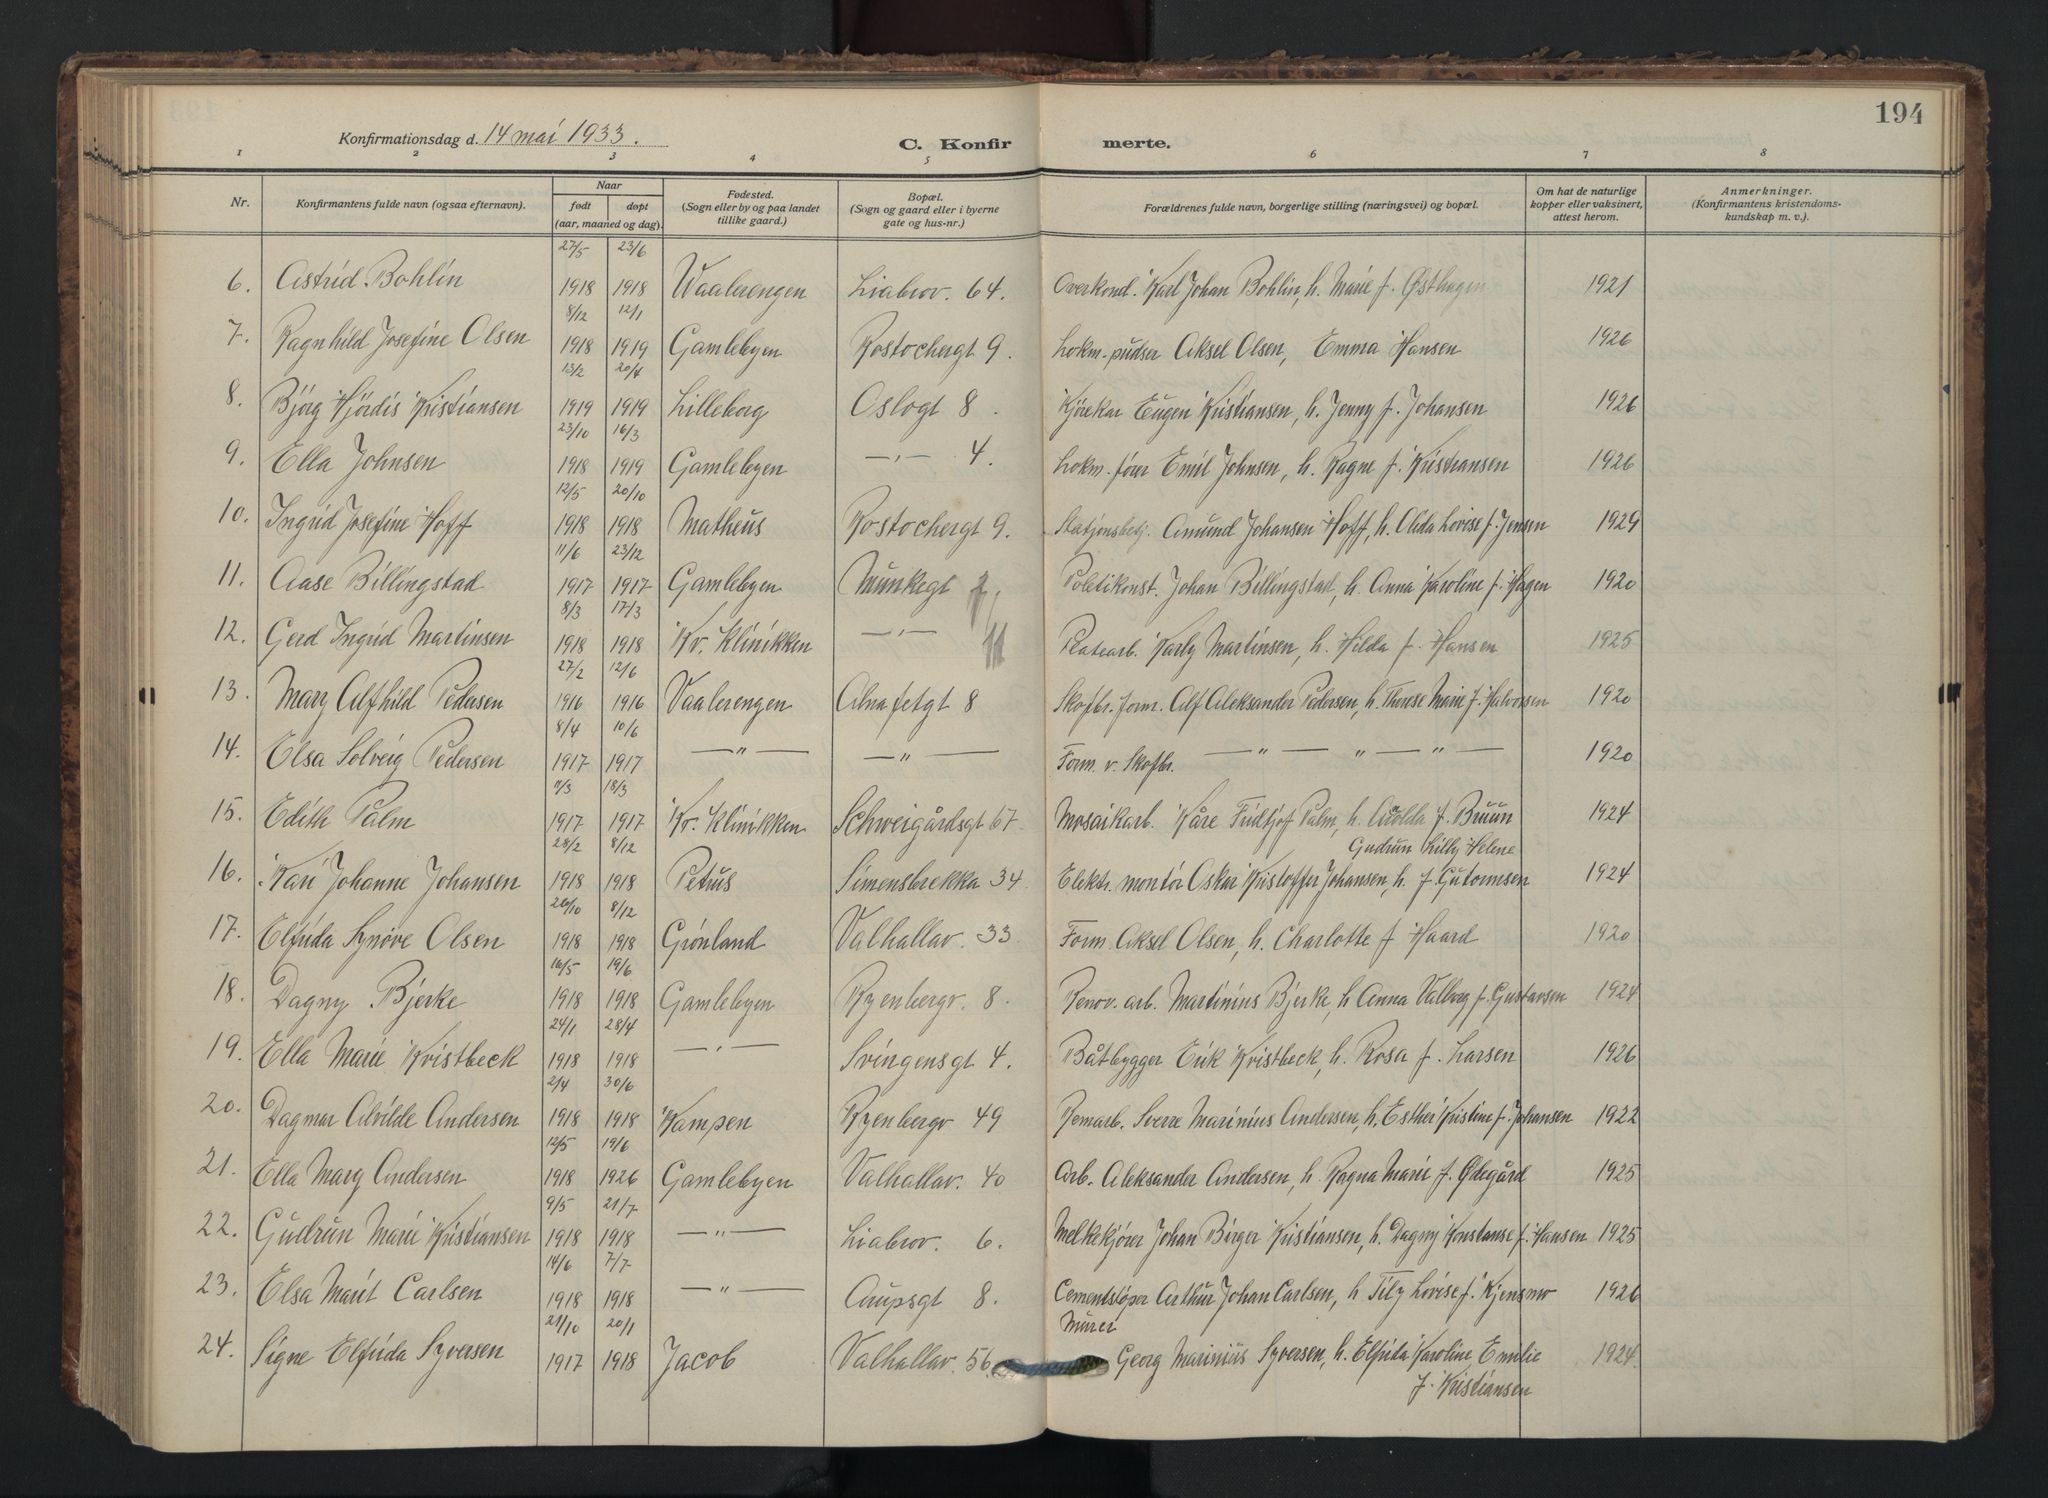 194
Konfirmationsdag d. 14 mai 1933. C. Konfir merte.
1 2 3 4 5 6 7 8
Nr. Konfirmantens fulde navn (ogsaa efternavn). Naar født døpt (aar, maaned og dag) Fødested. (Sogn eller by og paa landet tillike gaard.) Bopæl. (Sogn og gaard eller i byerne gate og hus-nr.) Forældrenes fulde navn, borgerlige stilling (næringsvei) og bopæl. Om hat de naturlige kopper eller vaksinert, attest herom. Anmerkninger. (Konfirmantens kristendoms-kundskap m. v.).
27/5 23/6
6. Astrid Bohlin 1918 1918 Vaalerengen Liabrov. 64. Overkond. Karl Johan Bohlin, h. Marie f. Østhagen 1921
8/12 12/1
7. Ragnhild Josefine Olsen 1918 1919 Gamlebyen Rostochergt 9. Lokm.-pudser Aksel Olsen, Emma Hansen 1926
13/2 20/4
8. Bjørg Hjørdis Kristiansen 1919 1919 Lilleborg Oslogt 8. Kjørekar Eugen Kristiansen, h. Jenny f. Johansen 1926
23/10 16/3
9. Ella Johnsen 1918 1919 Gamlebyen —"— 4. Lokm.-fører Emil Johnsen, h. Ragne f. Kristiansen 1926
12/5 20/10
10. Ingrid Josefine Hoff 1918 1918 Matheus Rostochergt 9. Statjonsbetj. Amund Johansen Hoff, h. Olida Lovise f. Jensen 1929
11/6 23/12
11. Aase Billingstad 1917 1917 Gamlebyen Munkegt Politikonst. Johan Billingstad, h. Anna Karoline f. Hagen 1920
8/3 17/3
12. Gerd Ingrid Martinsen 1918 1918 Kv. Klinikken —"— 11 Platearb. Karly Martinsen, h. Hilda f. Hansen 1925
27/2 12/6
13. Mary Alfhild Pedersen 1916 1916 Vaalerengen Alnafetgt 8 Skofbr. form. Alf Aleksander Pedersen, h. Therese Marie f. Halvorsen 1920
8/4 10/6
14. Elsa Solveig Pedersen 1917 1917 —"— —"— Form. v. Skofbr. — " — " — " — 1920
11/3 18/3
15. Edith Palm 1917 1917 Kv. Klinikken Schweigårdsgt 67. Mosaikarb. Kåre Fridtjof Palm, h. f. Bruun 1924
28/2 8/12 Gudrun Lilly Helene
16. Kari Johanne Johansen 1918 1918 Petrus Simensbrekka 34 Elektr. montør Oskar Kristoffer Johansen, h. f. Gutormsen 1924
26/10 8/12
17. Elfrida Synøve Olsen 1918 1918 Grønland Valhallav. 33 Form. Aksel Olsen, h. Charlotte f. Haard 1920
16/5 19/6
18. Dagny Bjerke 1918 1918 Gamlebyen Ryenbergv. 8. Renov. arb. Martinius Bjerke, h Anna Valborg f. Gustavsen 1924
24/1 28/4
19. Ella Marie Kvistbeck 1918 1918 —"— Svingensgt 4. Båtbygger Erik Kvistbeck, h. Rosa f. Larsen 1926
2/4 30/6
20. Dagmar Alvilde Andersen 1918 1918 Kampen Ryenbergv 49 Remarb. Sverre Marinius Andersen, h. Esther Kristine f. Johansen 1922
12/5 19/6
21. Ella Mary Andersen 1918 1926 Gamlebyen Valhallav. 40 Arb. Aleksander Andersen, h. Ragna Marie f. Ødegård 1925
9/5 21/7
22. Gudrun Marie Kristiansen 1918 1918 —"— Liabrov. 6. Melkekjører Johan Birger Kristiansen, h. Dagny Konstanse f. Hansen 1925
14/6 7/7
23. Elsa Marit Carlsen 1918 1918 —"— Arupsgt 8. Cementstøper Arthur Johan Carlsen, h Tily Lovise f. Kjensmo 1926
21/10 20/1 Murer
24. Signe Elfrida Syversen 1917 1918 Jacob Valhallav. 56. Georg Marinius Syversen, h. Elfrida Karoline Emilie 1924.
f. Kristiansen